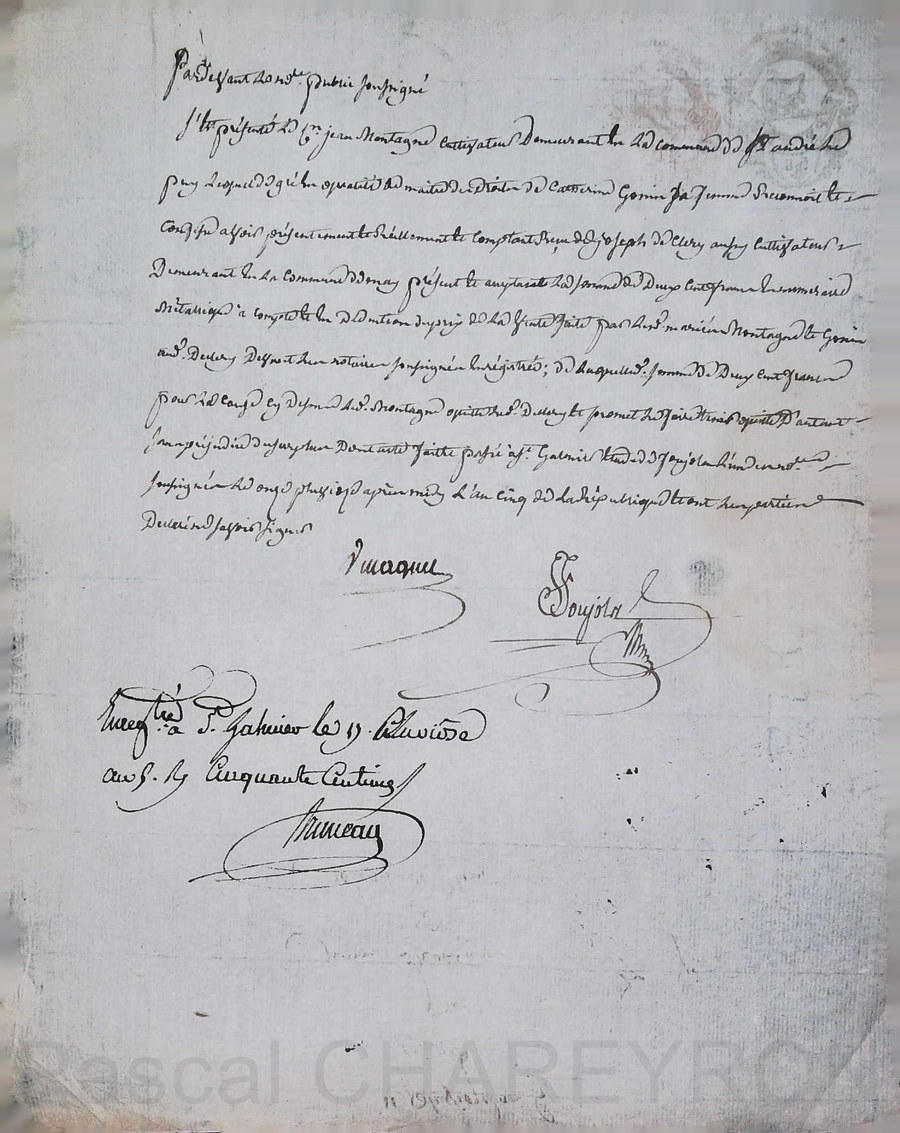 Pardevant le not.re public soussigné
s'est présenté le c.n jean Montagne Cultivateur Demeurant en La commune de s.t andré Le
puy Lequel de gré en qualité de maitre des droits de Catherine Gonin sa femme Reconnoit et
Confesse avoir présentement Réellement et Comptant Reçu de joseph de Clery aussy Cultivateur
Demeurant en La Commune d present et acceptant La somme de Deux Cent francs en numeraire
Métalique à compte et en Déduction du prix de La Vente faite par Les mariés Montagne et Gonin
aud. Declery Devant Les notaires soussignés Enrégistrée ; de Laquelle somme de Deux Cent francs
pour La cause cy Dessus Led. Montagne quitte led. Declery et promet Le faire tenir quitte D'autant
sans préjudice du surplus Dont acte faitte passé à s.t Galmier Etude de foujols L'un des not.res
soussignés Le onze pluviose après midy L'an cinq de La République et ont Les parties
Declaré ne savoir signer
foujols
Enreg.tré à S.t Galmier le 17. Pluviôse
an 5. R Cinquante Centimes
Bruneau
Pascal CHAREYRON